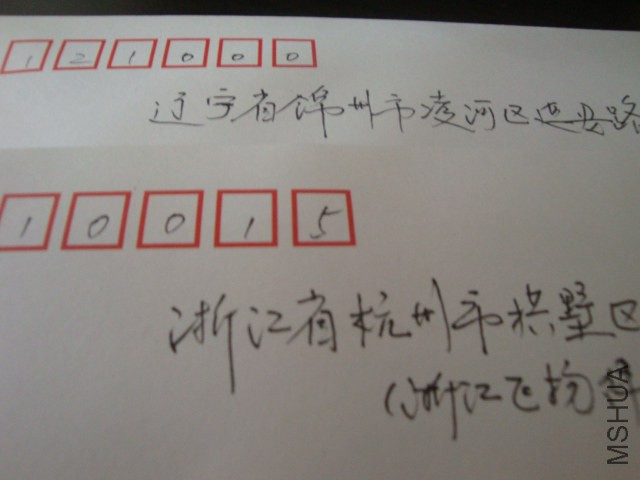 121000
辽宁省锦州市凌河区延安路
10015
浙江省杭州市拱墅区
(浙江飞扬
MSHUA